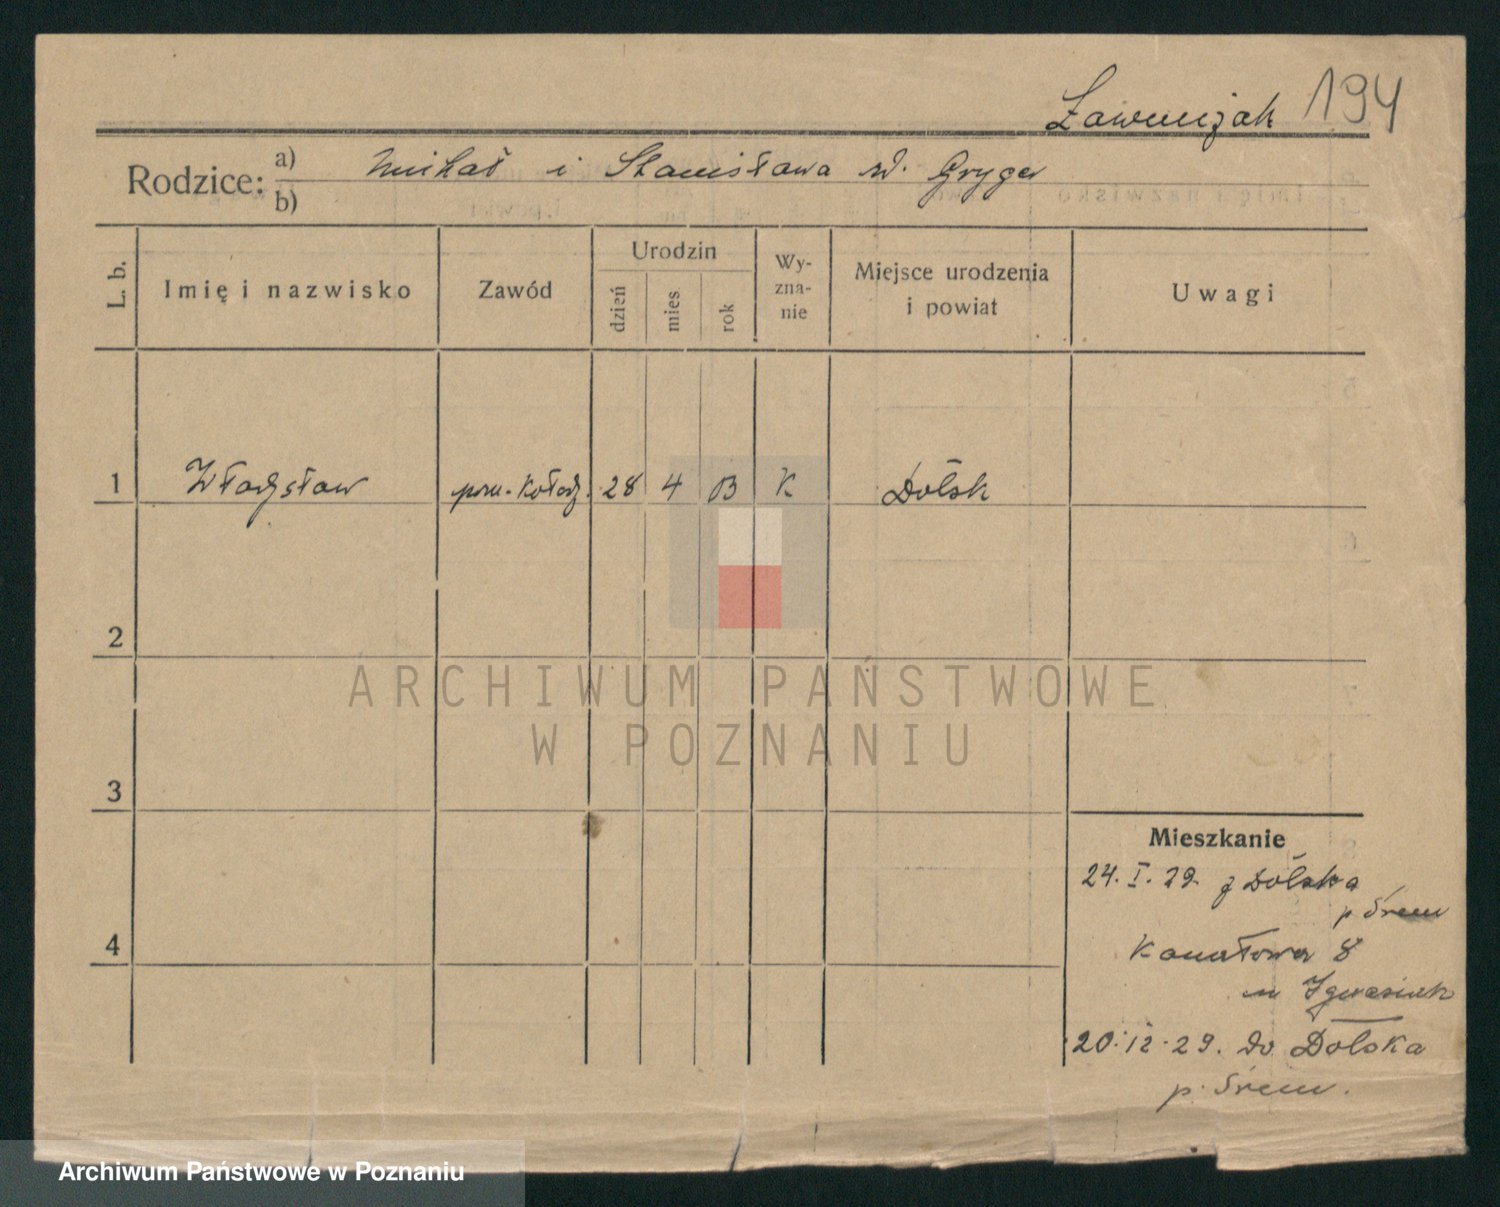 Ławniczak 194
Rodzice: a) Michał i Stanisława rd. Gryger
b)
L. b.
Imię i nazwisko
Zawód
Urodzin
dzień
mies
rok
Wy-
zna-
nie
Miejsce urodzenia
i powiat
Uwagi
1 Władysław pom. Kołodz. 28 4 13 K Dolsk
2
3
4
Mieszkanie
24. I. 29. z Dolska
p Śrem
Kanałowa 8
20.12.29. do Dolska
p. Śrem.
ARCHIWUM PAŃSTWOWE
W POZNANIU
Archiwum Państwowe w Poznaniu